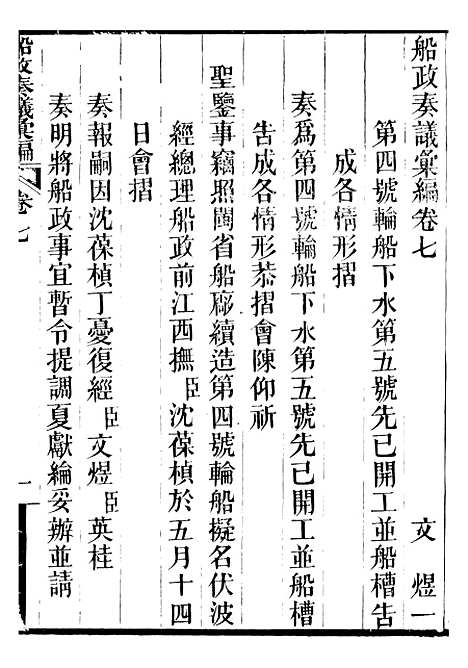 船政奏議彙編卷七
第四號輪船下水第五號先已開工並船槽告 文煜一
成各情形摺
奏爲第四號輪船下水第五號先已開工並船槽
告成各情形恭摺會陳仰祈
聖鑒事竊照閩省船廠續造第四號輪船擬名伏波
經總理船政前江西撫臣沈葆楨於五月十四
日會摺
奏報嗣因沈葆楨丁憂復經臣文煜臣英桂
奏明將船政事宜暫令提調夏獻綸妥辦並請
船政奏議彙編 卷七 一